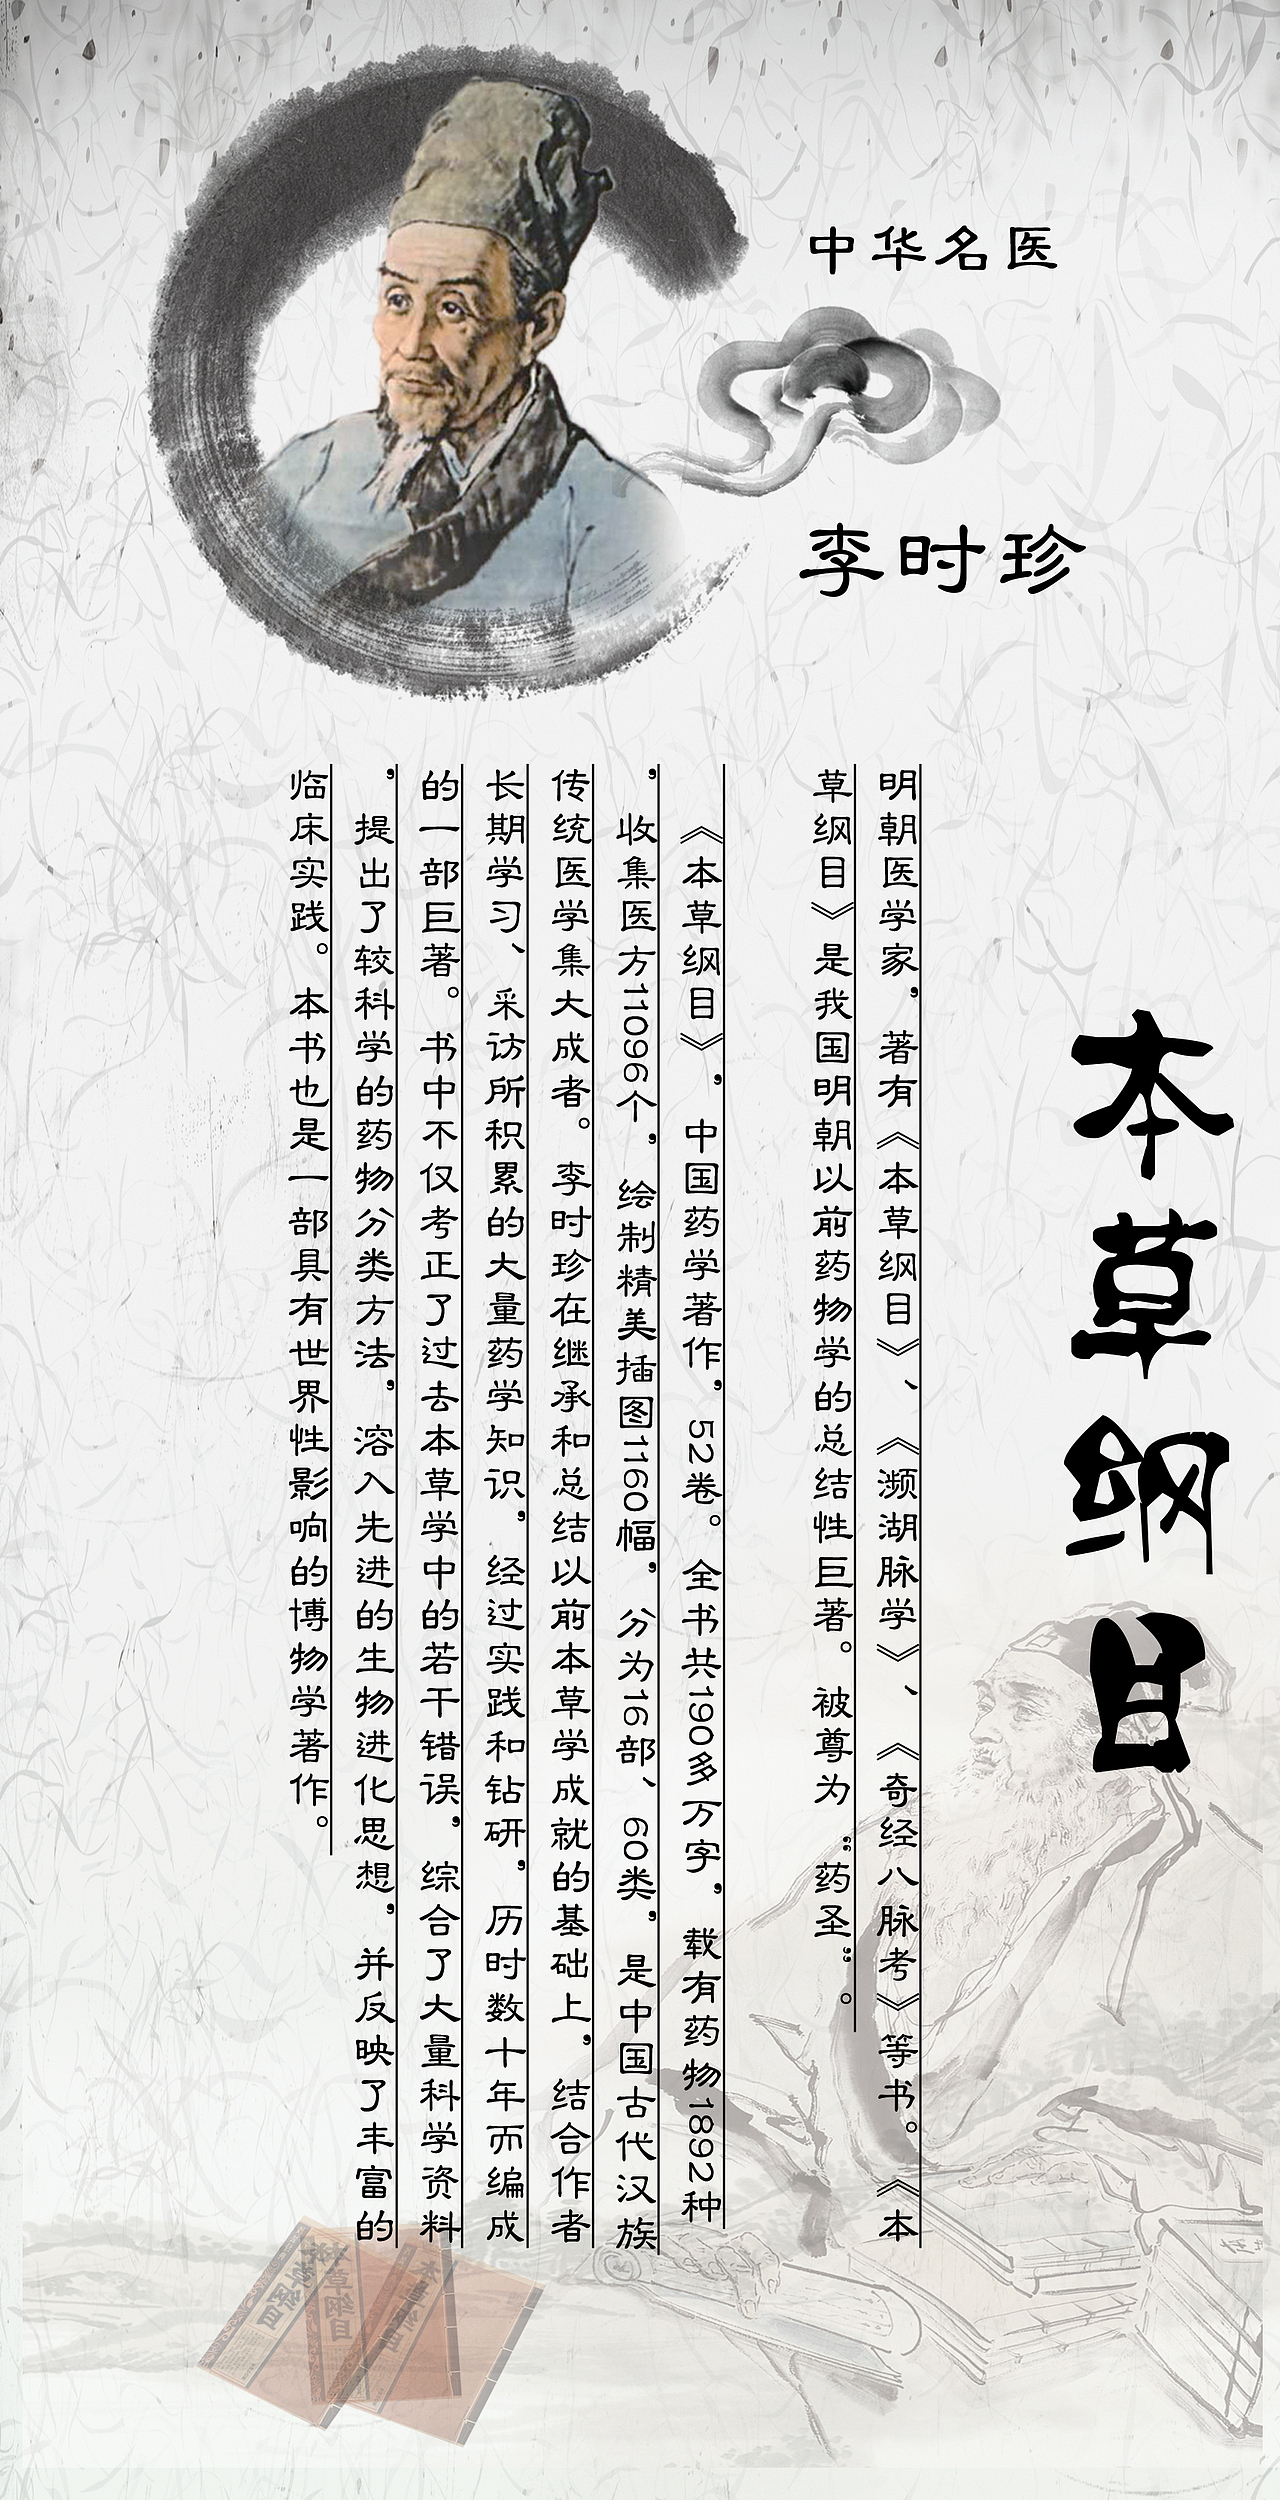 中华名医
李时珍
本草纲目
明朝医学家，著有《本草纲目》、《濒湖脉学》、《奇经八脉考》等书。《本
草纲目》是我国明朝以前药物学的总结性巨著。被尊为“药圣”。
《本草纲目》，中国药学著作，52卷。全书共190多万字，载有药物1892种
，收集医方11096个，绘制精美插图1160幅，分为16部、60类，是中国古代汉族
传统医学集大成者。李时珍在继承和总结以前本草学成就的基础上，结合作者
长期学习、采访所积累的大量药学知识，经过实践和钻研，历时数十年而编成
的一部巨著。书中不仅考正了过去本草学中的若干错误，综合了大量科学资料
，提出了较科学的药物分类方法，溶入先进的生物进化思想，并反映了丰富的
临床实践。本书也是一部具有世界性影响的博物学著作。